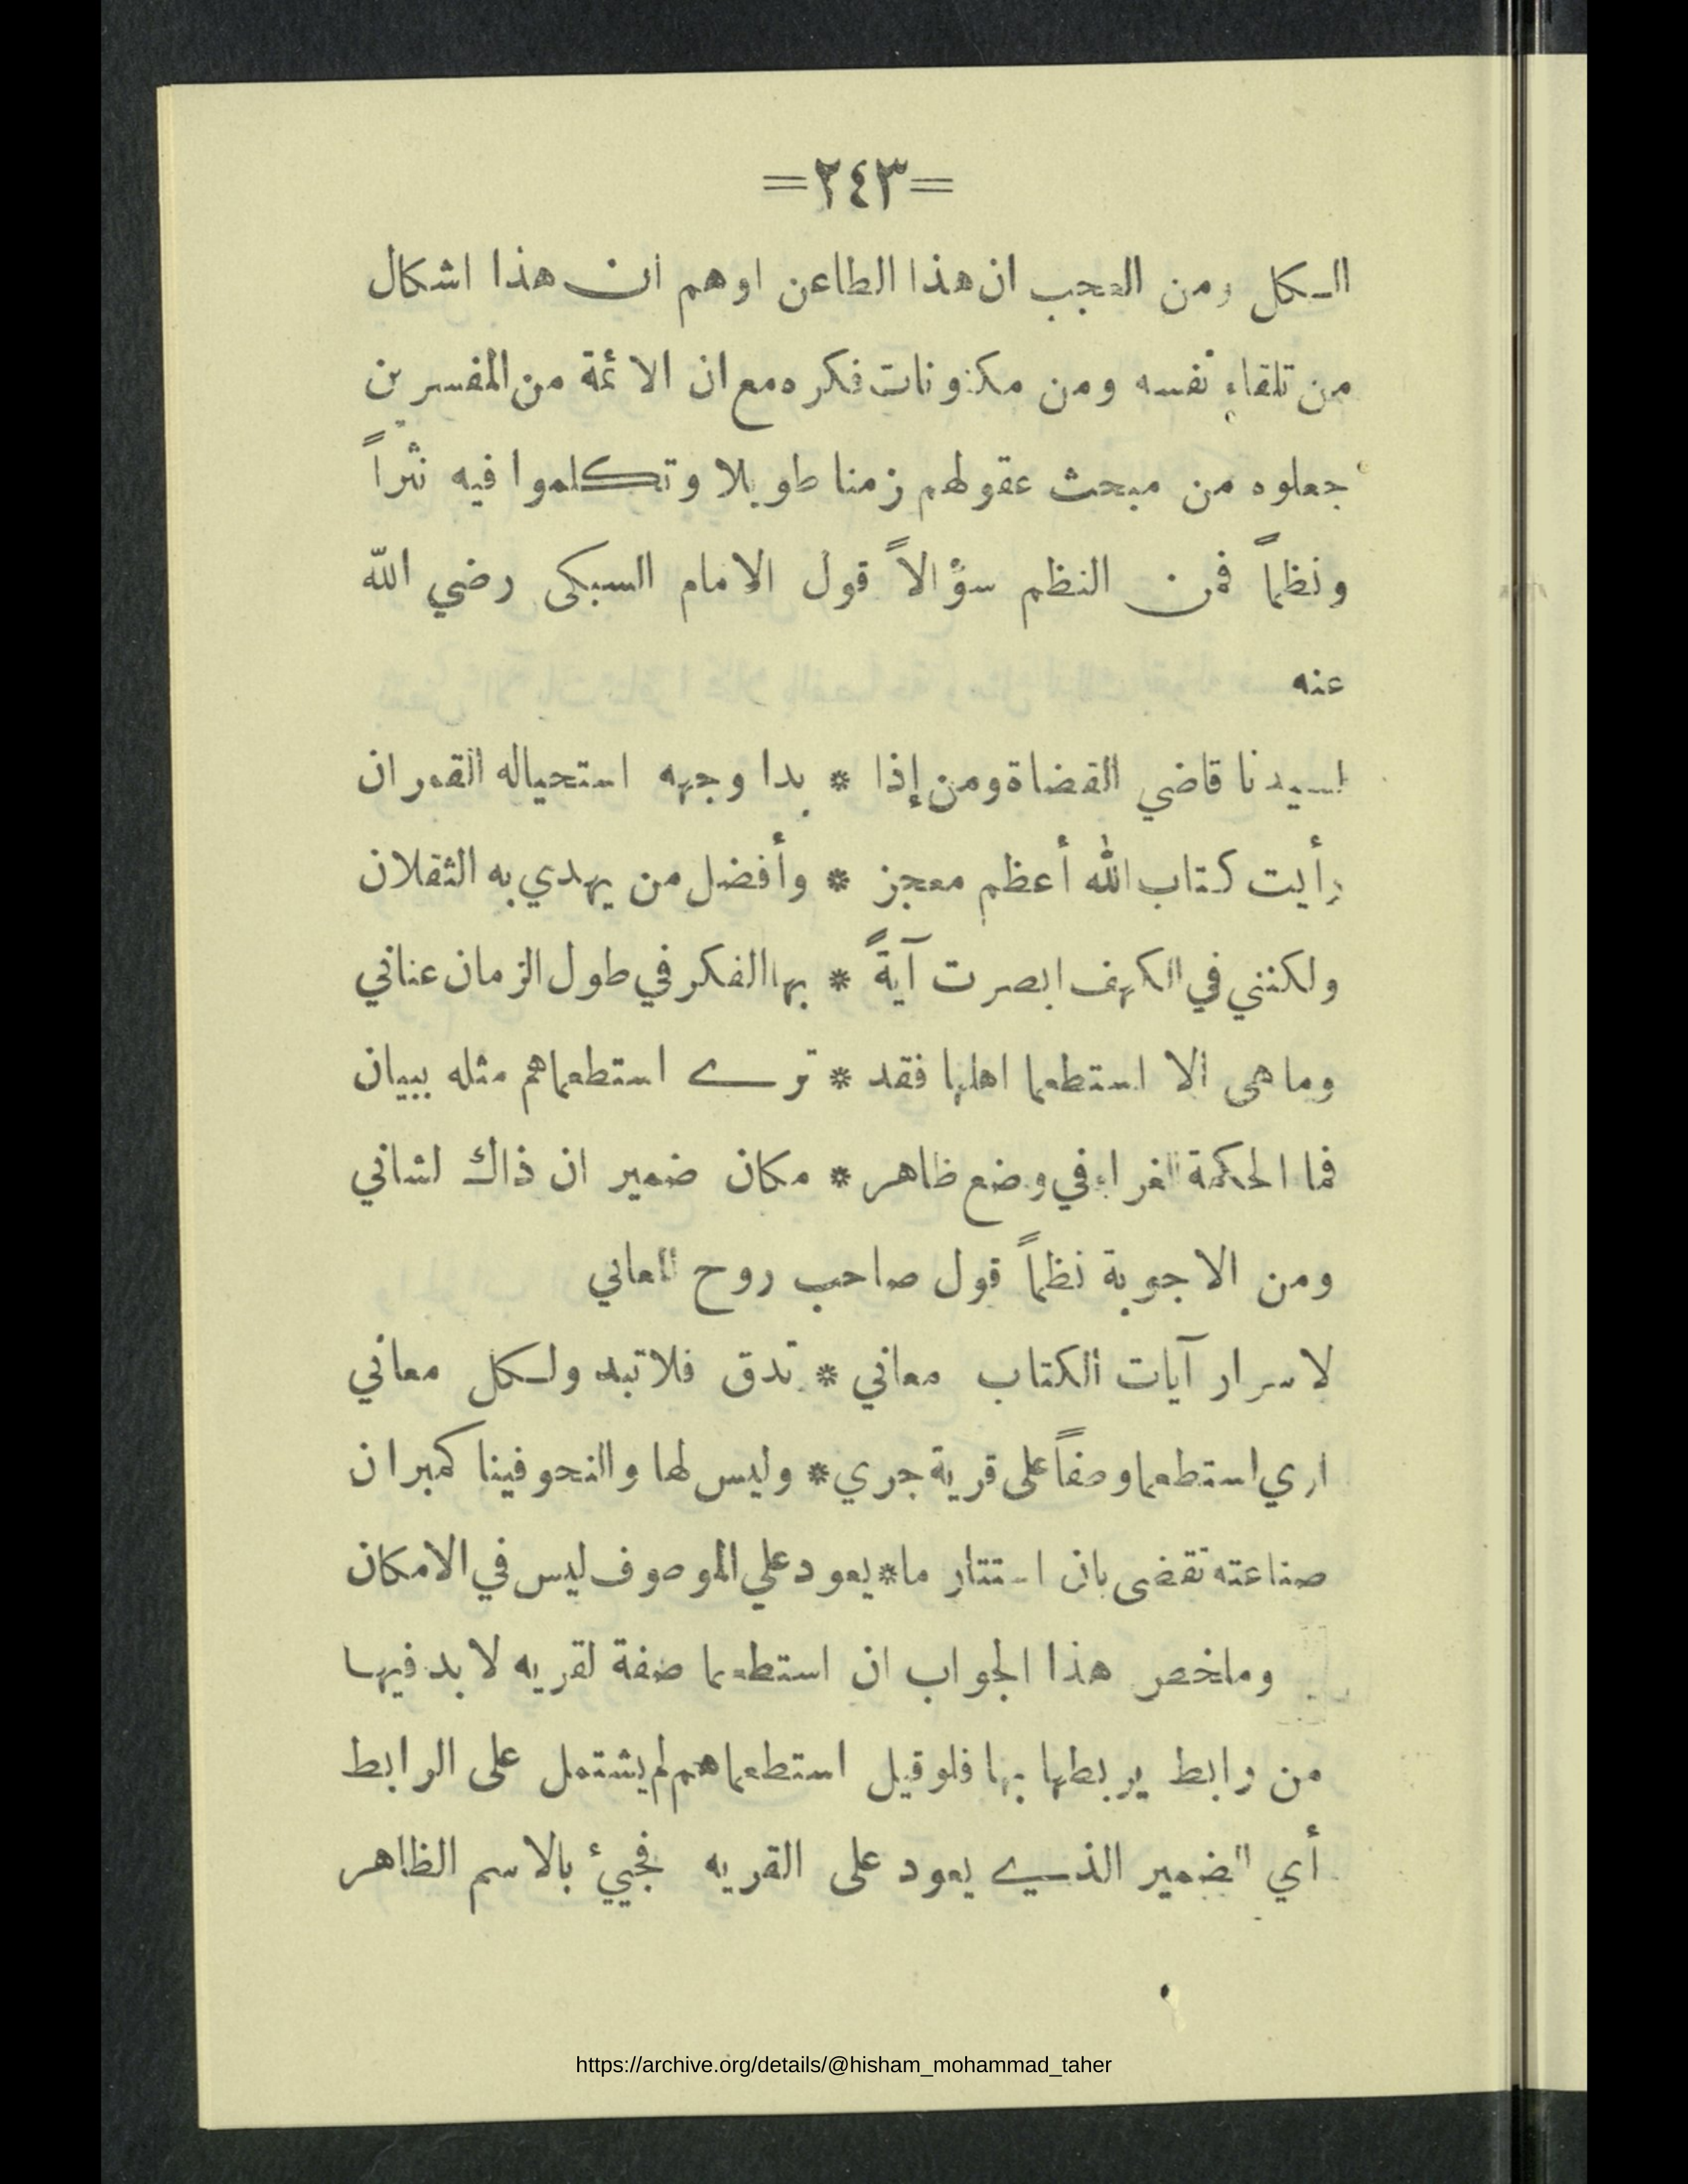 =٢٤٣=
الكل ومن العجب ان هذا الطاعن اوهم ان هذا اشكال
من تلقاء نفسه ومن مكنونات فكره مع ان الائمة من المفسرين
جعلوه من مبحث عقولهم زمنا طويلا وتكلموا فيه نثراً
ونظماً فمن النظم سؤالاً قول الامام السبكى رضي الله
عنه
اسيدنا قاضي القضاة ومن إذا * بدا وجهه استحياله القمران
رأيت كتاب الله أعظم معجز * وأفضل من يهدي به الثقلان
ولكنني في الكهف ابصرت آيةً * بها الفكر في طول الزمان عناني
وما هى الا استطعما اهلها فقد * ترى استطعماهم مثله ببيان
فما الحكمة الغراء في وضع ظاهر * مكان ضمير ان ذاك لشاني
ومن الاجوبة نظماً قول صاحب روح المعاني
لاسرار آيات الكتاب معاني * تدق فلا تبد ولكل معاني
اري استطعما وصفاً على قرية جري * وليس لها والنحو فينا كمبران
صناعته تقضى بان استتار ما * يعود علي الموصوف ليس في الامكان
وملخص هذا الجواب ان استطعما صفة لقريه لا بد فيها
من رابط يربطها بها فلو قيل استطعماهم لم يشتمل على الرابط
أي الضمير الذي يعود على القريه فجيئ بالاسم الظاهر
https://archive.org/details/@hisham_mohammad_taher